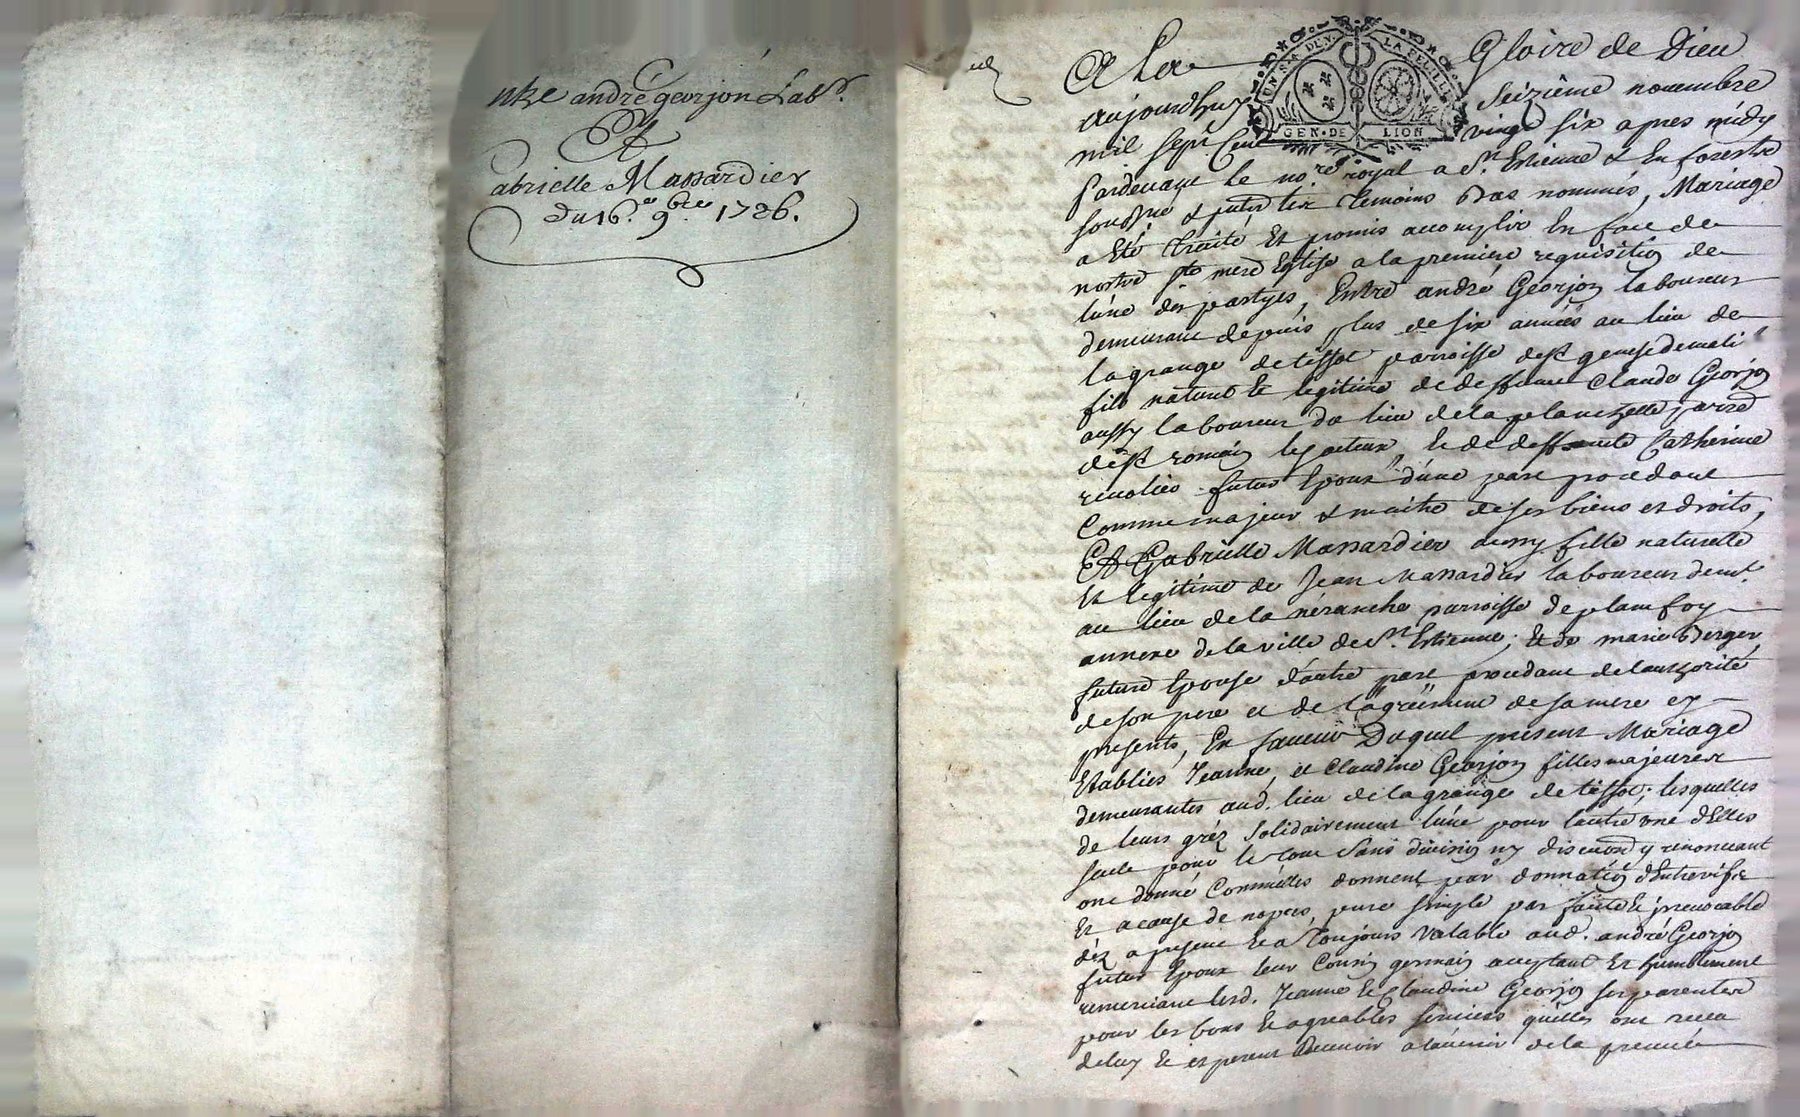 ntre andré georjon Lab.r
Et
Gabrielle Massardier
du 16.e 9.bre 1726.
A La Gloire de Dieu
UN S. 4 DEN. LA FEUILLE
GEN. DE LION
aujourdhuy seizième novembre
mil sept Cent vingt six apres midy
Pardevant le no.re royal a St. Estienne & En forestz
soubsné & presentz temoins bas nommés, Mariage
a Eté traité Et promis accomplir En face de
nostre ste mere Eglise a la premiere requisition de
l'une des partyes, Entre andré Georjon laboureur
demeurant depuis plus de six années au lieu de
la grange de tissot parroisse de st genest de mali
fils naturel et legitime de deffunt Claude Georjon
aussy laboureur du lieu de la planchette parre
de st romain les atteux, et de deffuncte Catherine
rivolier futur Epoux d'une part procedant
Comme majeur & maitre de ses biens et droits,
Et Gabrielle Massardier aussy fille naturelle
Et legitime de Jean Massardier laboureur demt.
au lieu de la néranche parroisse de planfoy
annexe de la ville de St. Estienne; et de marie Berger,
future Epouse d'autre part procedant de l'authorité
de son pere et de l'agréement de sa mere cy
presents, En faveur Duquel present Mariage
Etablies Jeanne, et Claudine Georjon filles majeures
demeurantes aud. lieu de la grange de tissot; lesquelles
de leurs gréz solidairement l'une pour l'autre une d'Elles
seule pour le tout sans division ny discution y renonceant
ont donné Comm'elles donnent par donnation d'Entrevifs
Et a cause de nopces, pure simple parfaite et irrevocable
déz a present et a toujours valable aud. andré Georjon
futur Epoux leur Cousin germain acceptant Et humblement
remerciant lesd. Jeanne et Claudine Georjon ses parentes
pour les bons et agreables services qu'elles ont receu
de luy et esperent recevoir a l'avenir de la preuve